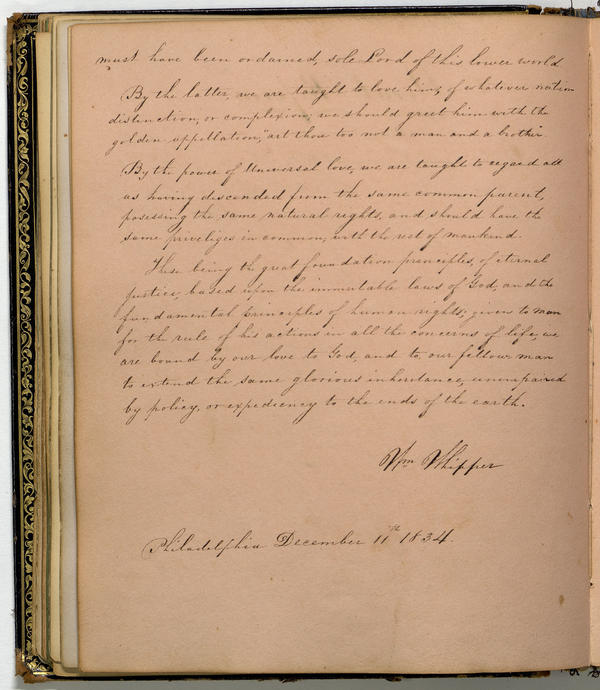 must have been ordained, sole Lord of this lower world
By the latter, we are taught to love him, of whatever nation
distinction, or complexion, we should greet him with the
golden appellation, "art thou too not a man and a brother
By the power of Universal love, we are taught to regard all
as having descended from the same common parent,
posessing the same natural rights, and should have the
same priveliges in common, with the rest of mankind.
These being the great foundation principles, of eternal
justice, based upon the immutable laws of God, and the
fundamental principles of human rights, given to man
for the rule of his actions in all the concerns of life, we
are bound by our love to God, and to our fellow man
to extend the same glorious inheritance, unimpaired
by policy, or expediency to the ends of the earth.
Wm Whipper
Philadelphia December 11th 1834.